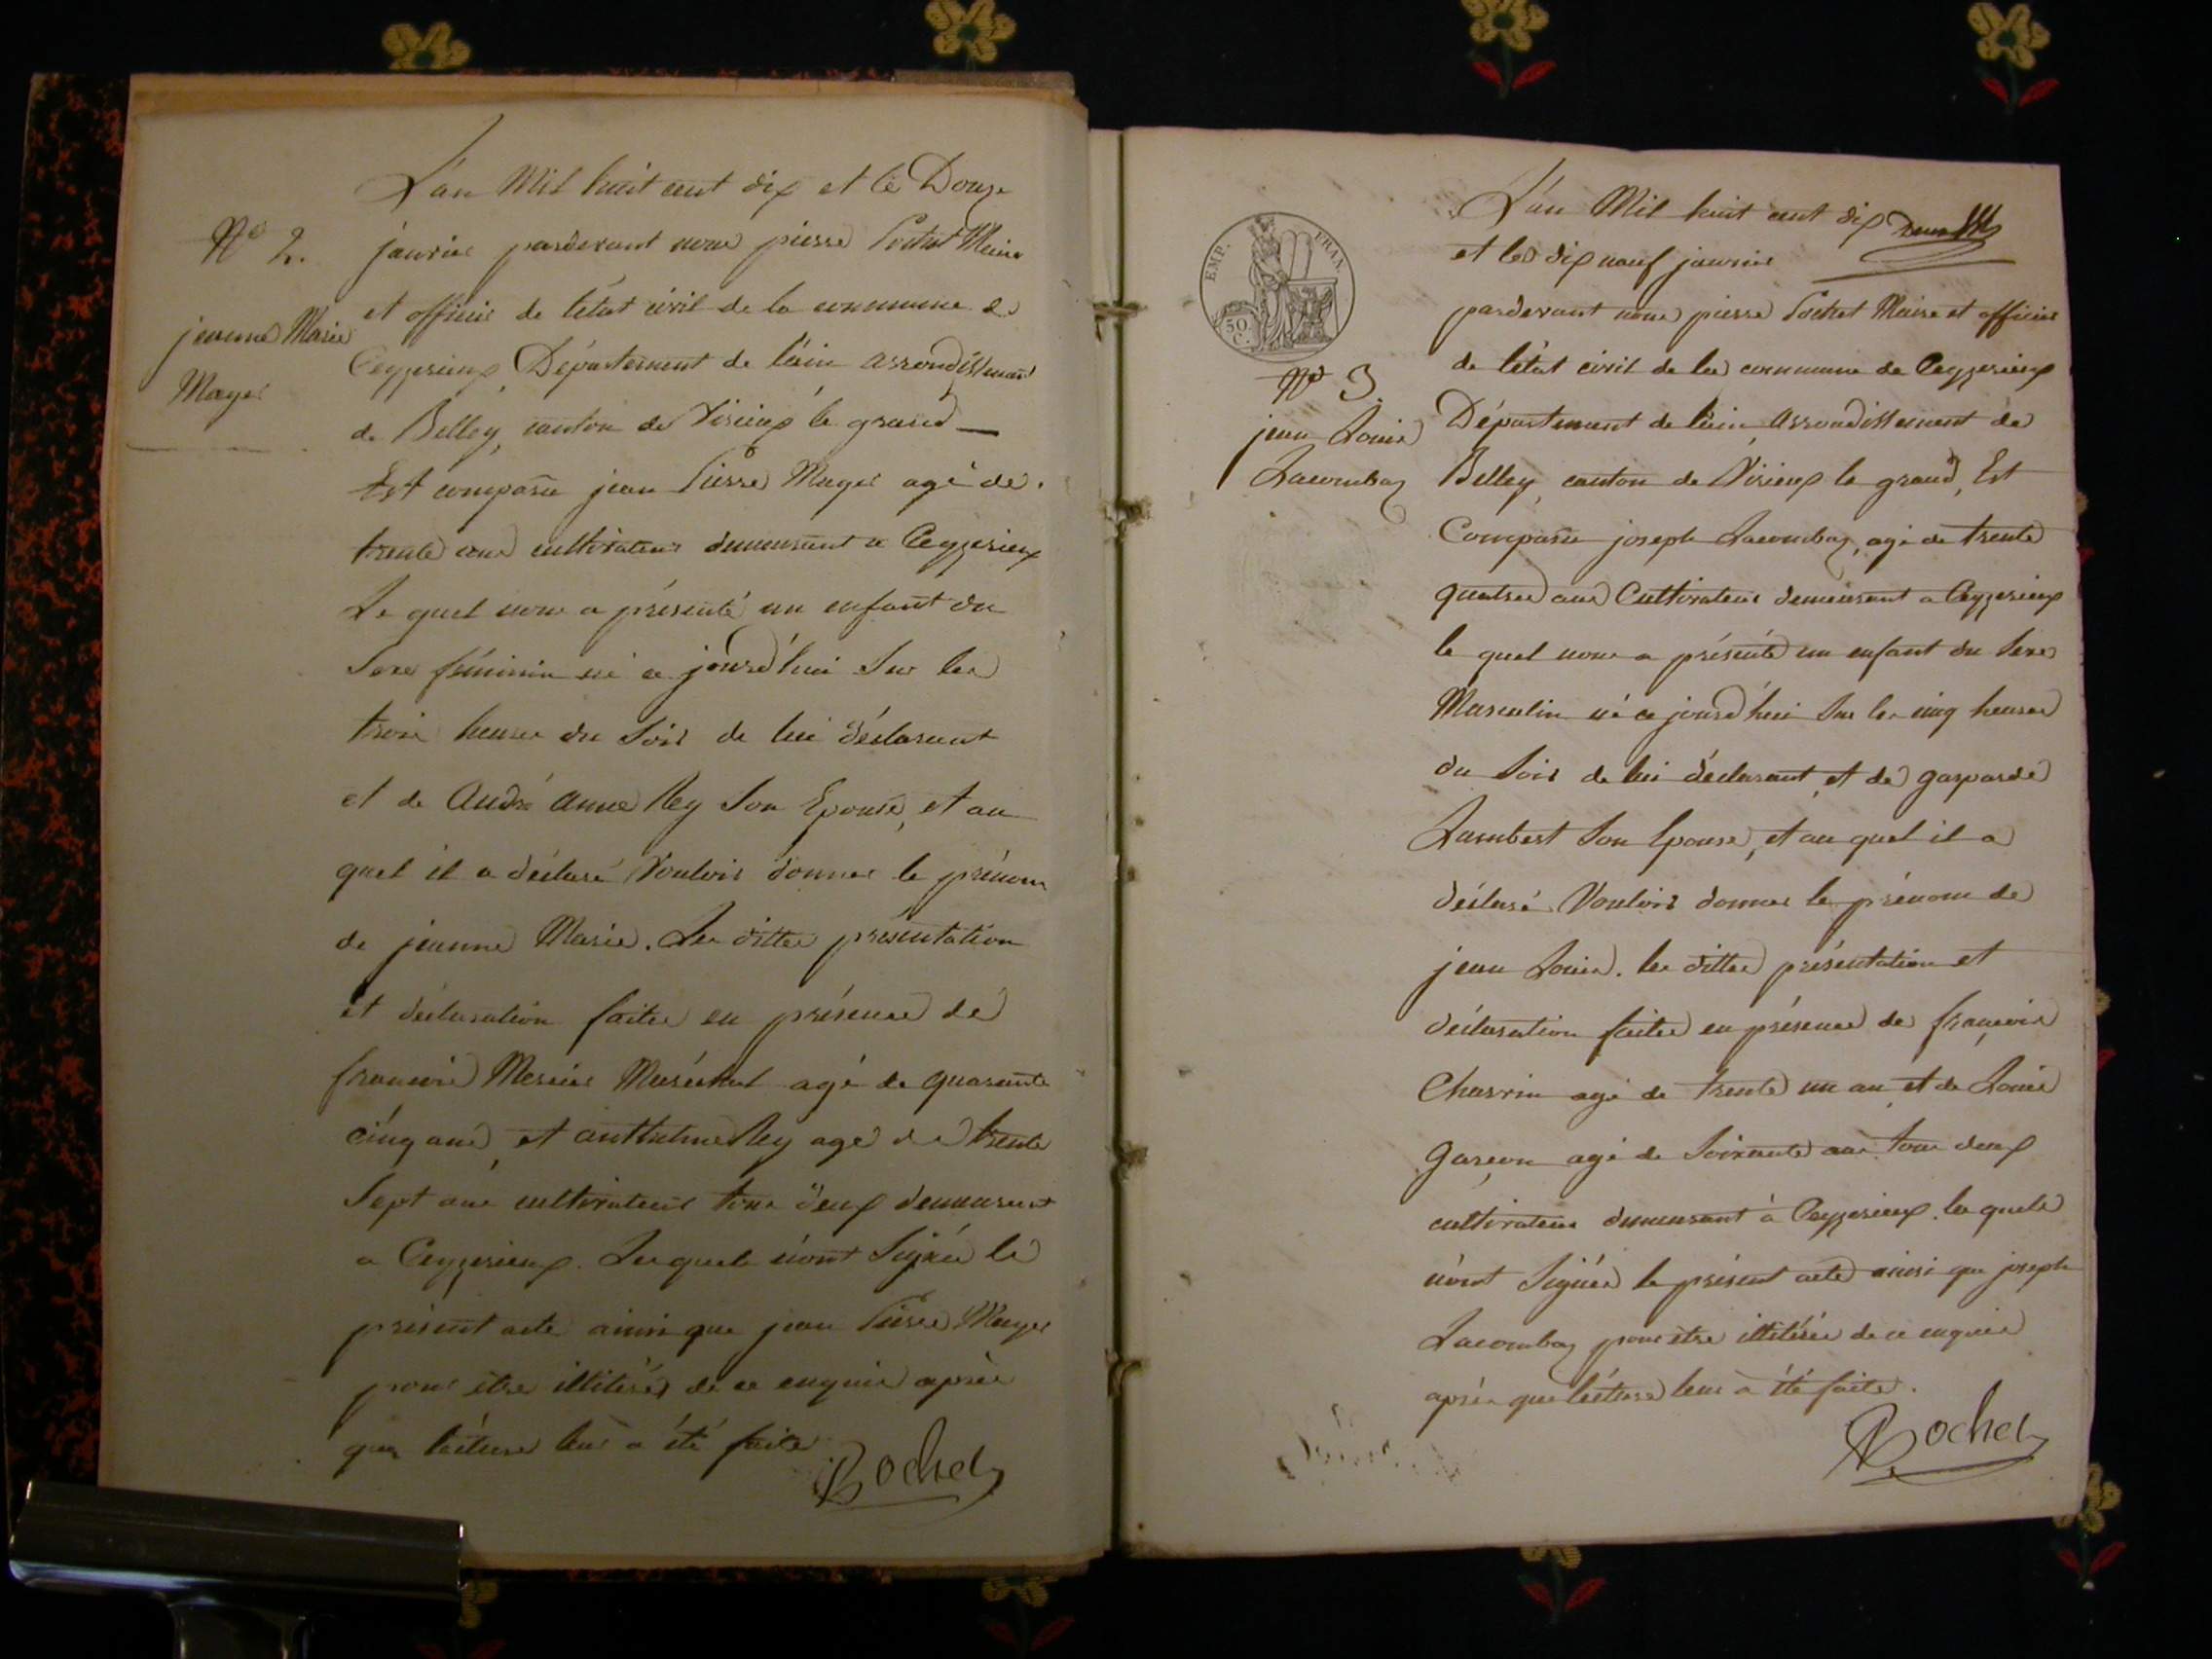 L'an Mil huit cent dix et le Douze
N° 2. janvier pardevant nous pierre Pochet Maire
et officier de l'état civil de la commune de
jeanne Marie
Mayer
Ceyzerieux, Département de l'ain arrondissement
de Belley, canton de Virieux le grand
Est comparu jean Pierre Mayer agé de
trente ans cultivateur demeurant a Ceyzerieux
Le quel nous a présenté un enfant du
Sexe féminin né ce jourd'hui Sur les
trois heures du Soir de lui déclarant
et de André Anne Rey Son Epouse, et au
quel il a déclaré Vouloir donner le prénom
de jeanne Marie. Les dittes présentation
et déclaration faites en présence de
françois Mercier Maréchal agé de quarante
cinq ans, et anthelme Rey agé de trente
Sept ans cultivateurs tous deux demeurant
a Ceyzerieux. Lesquels n'ont Signés le
présent acte ainsi que jean Pierre Mayer
pour être illitérés de ce enquis après
que lécture leur a été faite
Pochet
L'an Mil huit cent dix
et le dix neuf janvier
EMP. FRAN.
50
C.
pardevant nous pierre Pochet Maire et officier
de l'état civil de la commune de Ceyzerieux
N° 3.
jean Louis
Lacombaz
Département de l'ain, arrondissement de
Belley, canton de Virieux le grand, Est
Comparu joseph Lacombaz, agé de trente
quatre ans Cultivateur demeurant a Ceyzerieux
le quel nous a présenté un enfant du Sexe
Masculin né ce jourd'hui Sur les cinq heures
du Soir de lui déclarant, et de gasparde
Lambert Son Epouse, et au quel il a
déclaré Vouloir donner le prénom de
jean Louis. les dittes présentation et
déclaration faites en présence de françois
Charvin agé de trente un an, et de Louis
garçon agé de Soixante ans tous deux
cultivateurs demeurant à Ceyzerieux. les quels
n'ont Signés le présent acte ainsi que joseph
Lacombaz pour être illitérés de ce enquis
après que lécture leur a été faite.
Pochet